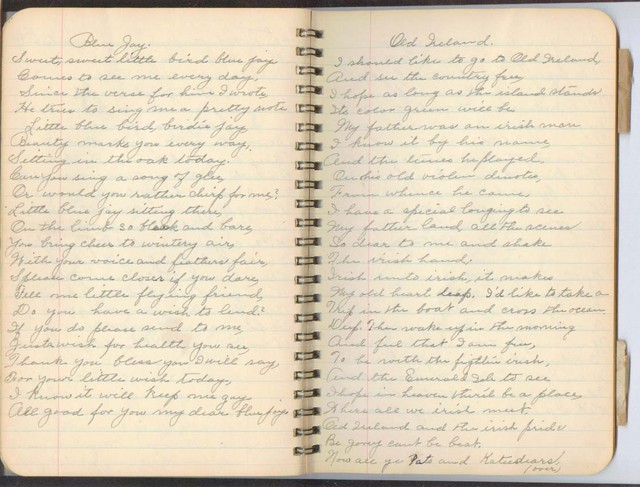 Blue Jay.
Sweet, sweet little bird blue jay
Comes to see me every day,
Since the verse for him I wrote
He tries to sing me a pretty note
Little blue bird, birdie jay
Beauty marks you every way,
Sitting in the oak today.
Can you sing a song of glee,
Or would you rather chirp for me?
Little blue jay sitting there,
On the limb so bleak and bare,
You bring cheer to wintery air,
With your voice and feathers fair,
Please come closer if you dare,
Tell me little flying friend,
Do you have a wish to lend?
If you do please send to me,
Just a wish for health, you see,
Thank you bless you I will say,
For your little wish today,
I know it will keep me gay
All good for you my dear blue jay.
Old Ireland.
I should like to go to Old Ireland,
And see the country free,
I hope as long as the island stands
Its color green will be
My father was an irish man
I know it by his name
And the tunes he played,
On his old violin denotes,
From whence he came,
I have a special longing to see
My father land, all the scenes
So dear to me and shake
The irish hand;
Irish unto irish, it makes
My old heart leap. I'd like to take a
Trip in the boat and cross the ocean
Deep. Then wake up in the morning
And feel that I am free,
To be with the fightin irish,
And the Emerald Isle to see
I hope in heaven ther'll be a place
Where all we irish meet,
Old Ireland and the irish pride
Be gorry cant be beat.
Now all ye Pats and Katies dears
(over